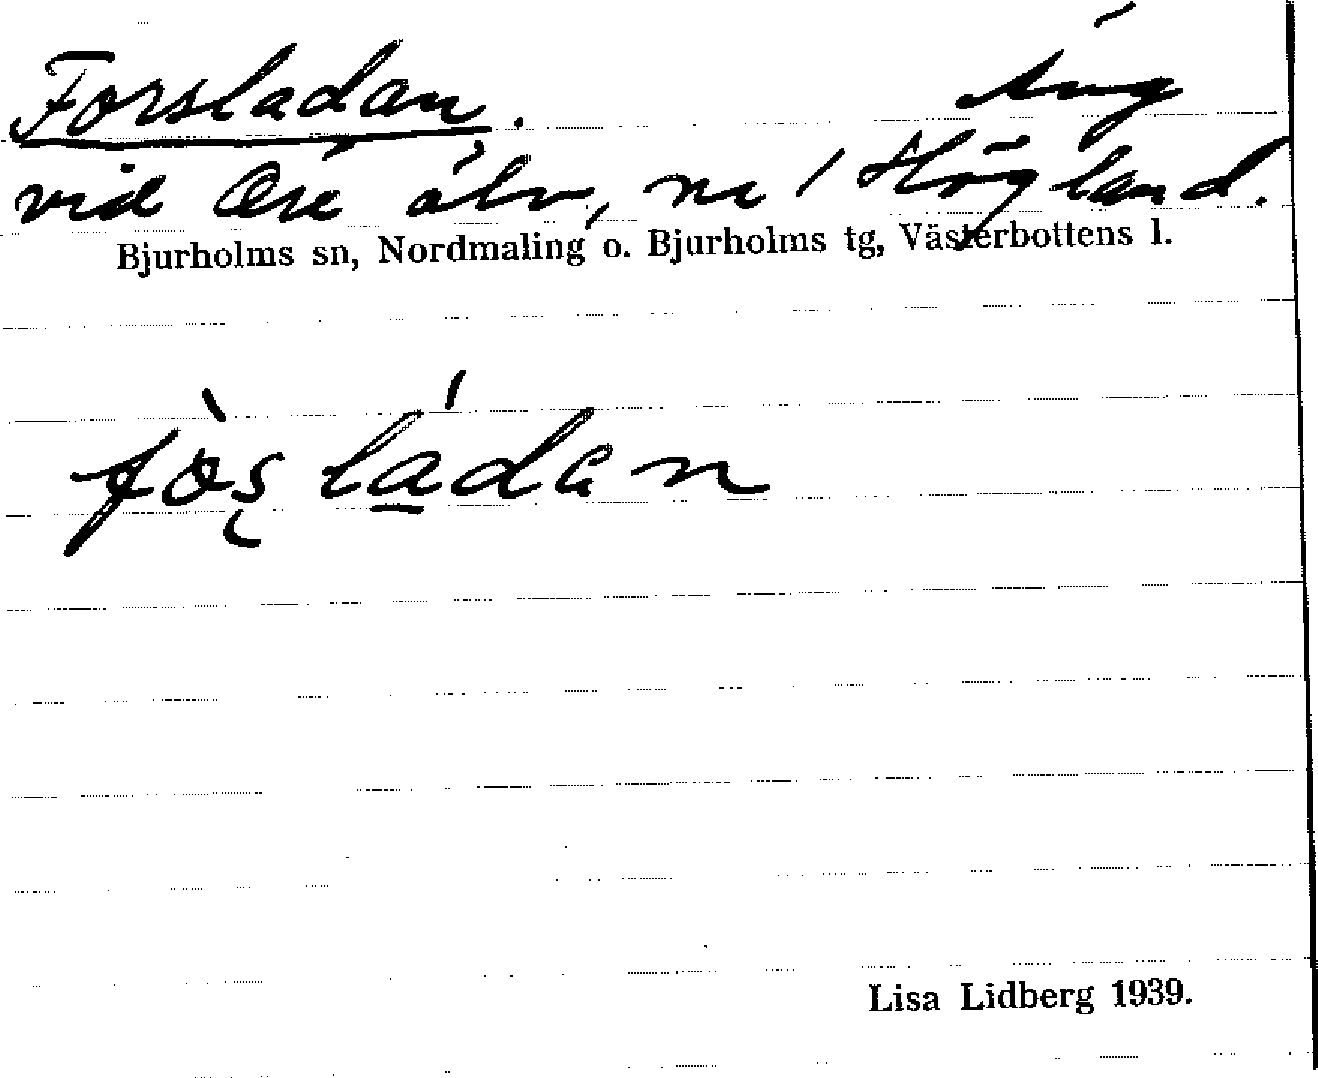 Forsladan. Äng
vid Öre älv, nr 1 Högland.
Bjurholms sn, Nordmaling o. Bjurholms tg, Västerbottens l.
fò̀s̨ láda̱n
Lisa Lidberg 1939.